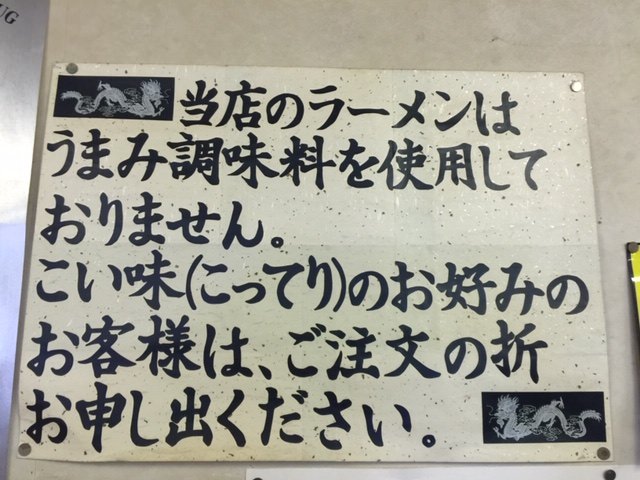 UG
当店のラーメンは
うまみ調味料を使用して
おりません。
こい味(こってり)のお好みの
お客様は、ご注文の折
お申し出ください。